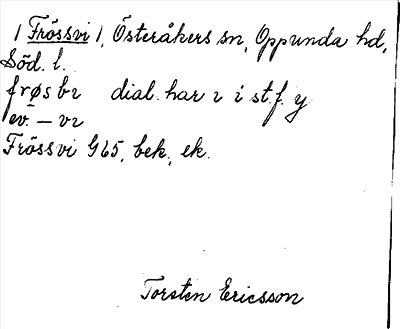 / Frössvi /, Österåkers sn, Oppunda hd,
Söd. l.
frøsbɩ dial. har ɩ i st. f. y
ev. – vɩ
Frössvi G65, bek., ek.
Torsten Ericsson